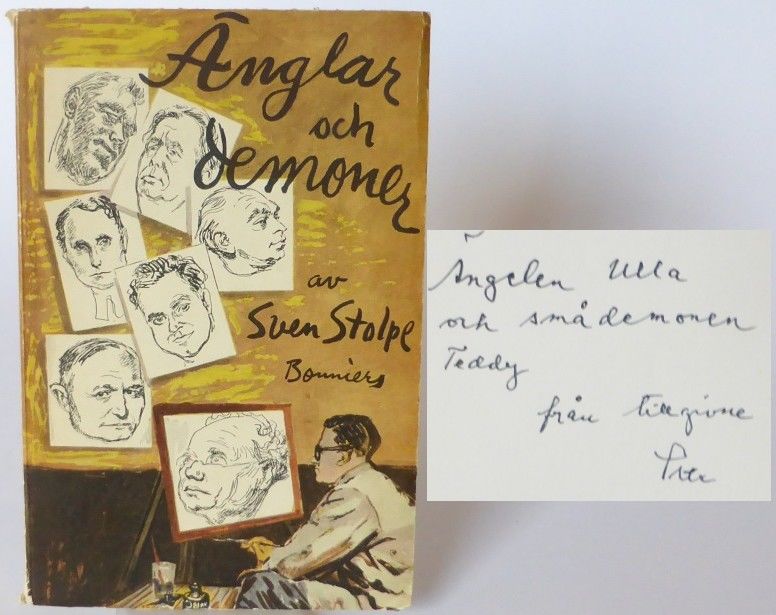 Änglar
och
demoner
av
Sven Stolpe
Bonniers
Ängelen Ulla
och smådemonen
Teddy
från tillgivne
Sven